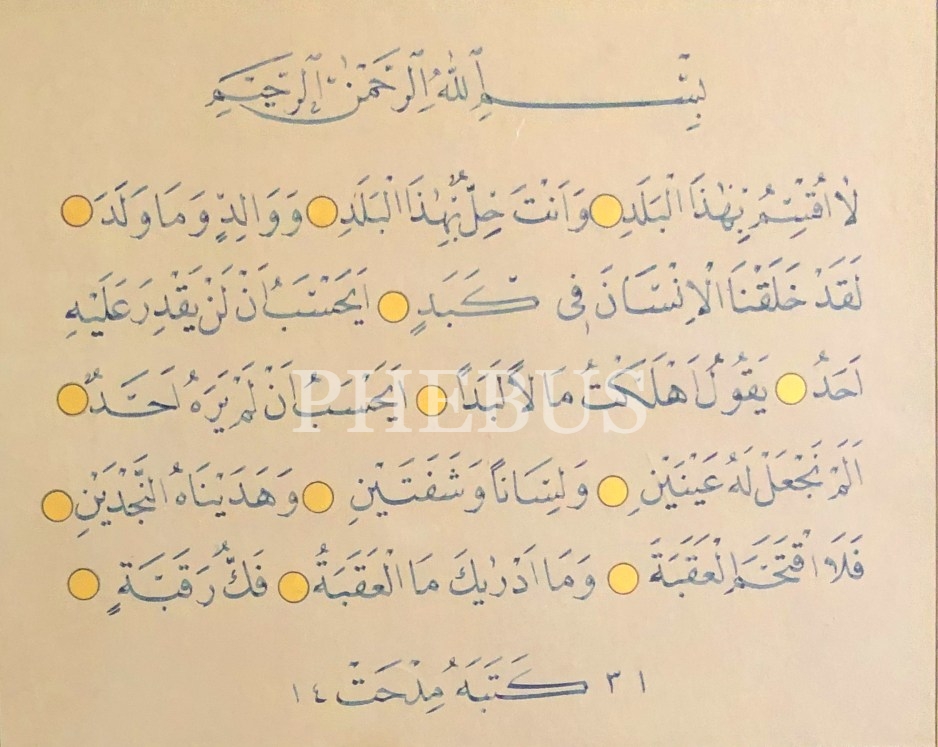 بِسْمِ اللّٰهِ الرَّحْمٰنِ الرَّحِيمِ
لَا اُقْسِمُ بِهٰذَا الْبَلَدِ وَاَنْتَ حِلٌّ بِهٰذَا الْبَلَدِ وَوَالِدٍ وَمَا وَلَدَ
لَقَدْ خَلَقْنَا الْاِنْسَانَ فِى كَبَدٍ اَيَحْسَبُ اَنْ لَنْ يَقْدِرَ عَلَيْهِ
اَحَدٌ يَقُولُ اَهْلَكْتُ مَالًا لُبَدًا اَيَحْسَبُ اَنْ لَمْ يَرَهُ اَحَدٌ
PHEBUS
اَلَمْ نَجْعَلْ لَهُ عَيْنَيْنِ وَلِسَانًا وَشَفَتَيْنِ وَهَدَيْنَاهُ النَّجْدَيْنِ
فَلَا اقْتَحَمَ الْعَقَبَةَ وَمَا اَدْرٰيكَ مَا الْعَقَبَةُ فَكُّ رَقَبَةٍ
١٣ كَتَبَهُ مِدْحَتْ ١٤